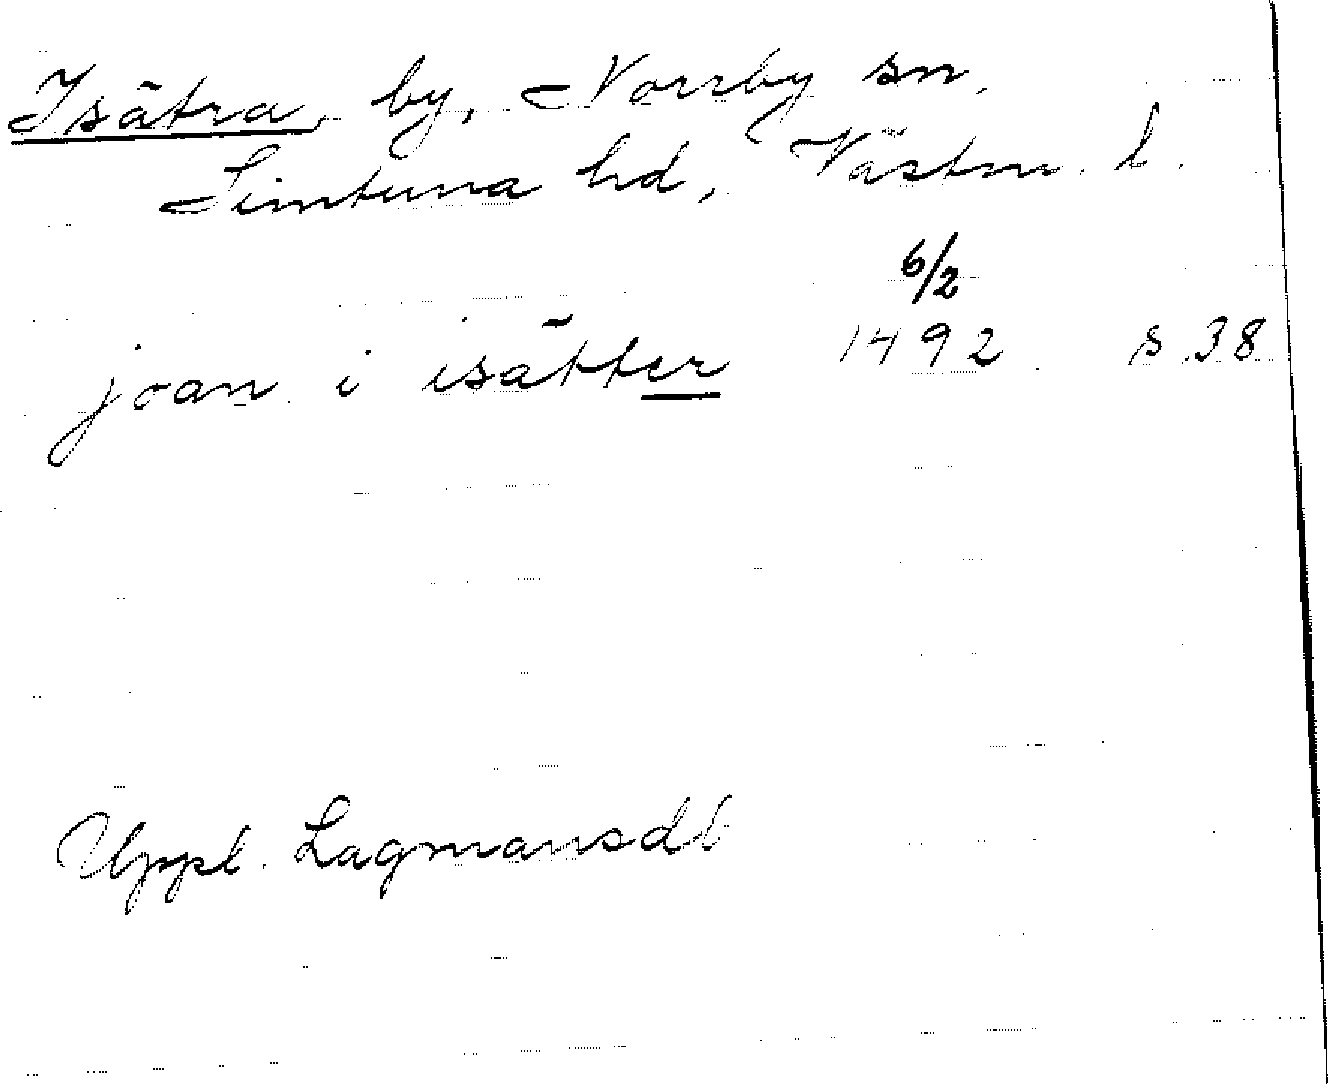 Isätra, by, Norrby sn,
Simtuna hd, Västm. l.
6/2
joan i isätter 1492 s. 38
Uppl. Lagmansdb